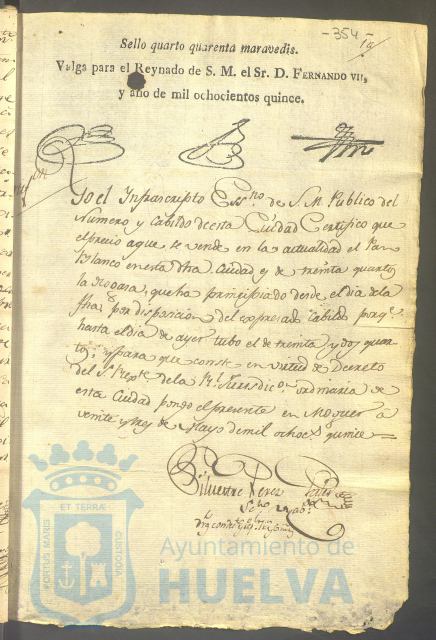 - 354 -
Sello quarto quarenta maravedis.
Valga para el Reynado de S. M. el Sr. D. FERNANDO VII,
y año de mil ochocientos quince.
Yo el Infrascripto Essno de S. M. Publico del
Numero y Cabildo de esta Ciudad Certifico que
el precio a que se vende en la actualidad el Pan
Blanco en esta dha. Ciudad es de treinta quartos
la Hogaza, que ha principiado desde el dia de la
fha, por disposicion del expresado Cabildo porqe
hasta el dia de ayer tubo el de treinta y dos quar
tos; y para que conste en virtud de Decreto
del Sr. de la Rl. Jurisdicon. ordinaria de
esta Ciudad pongo el presente en Moguer á
veinte y de Mayo de mil ochocs. quince
Silvestre Perez
ET TERRÆ
PORTUS MARIS
CUSTODIA
Ayuntamiento de
HUELVA